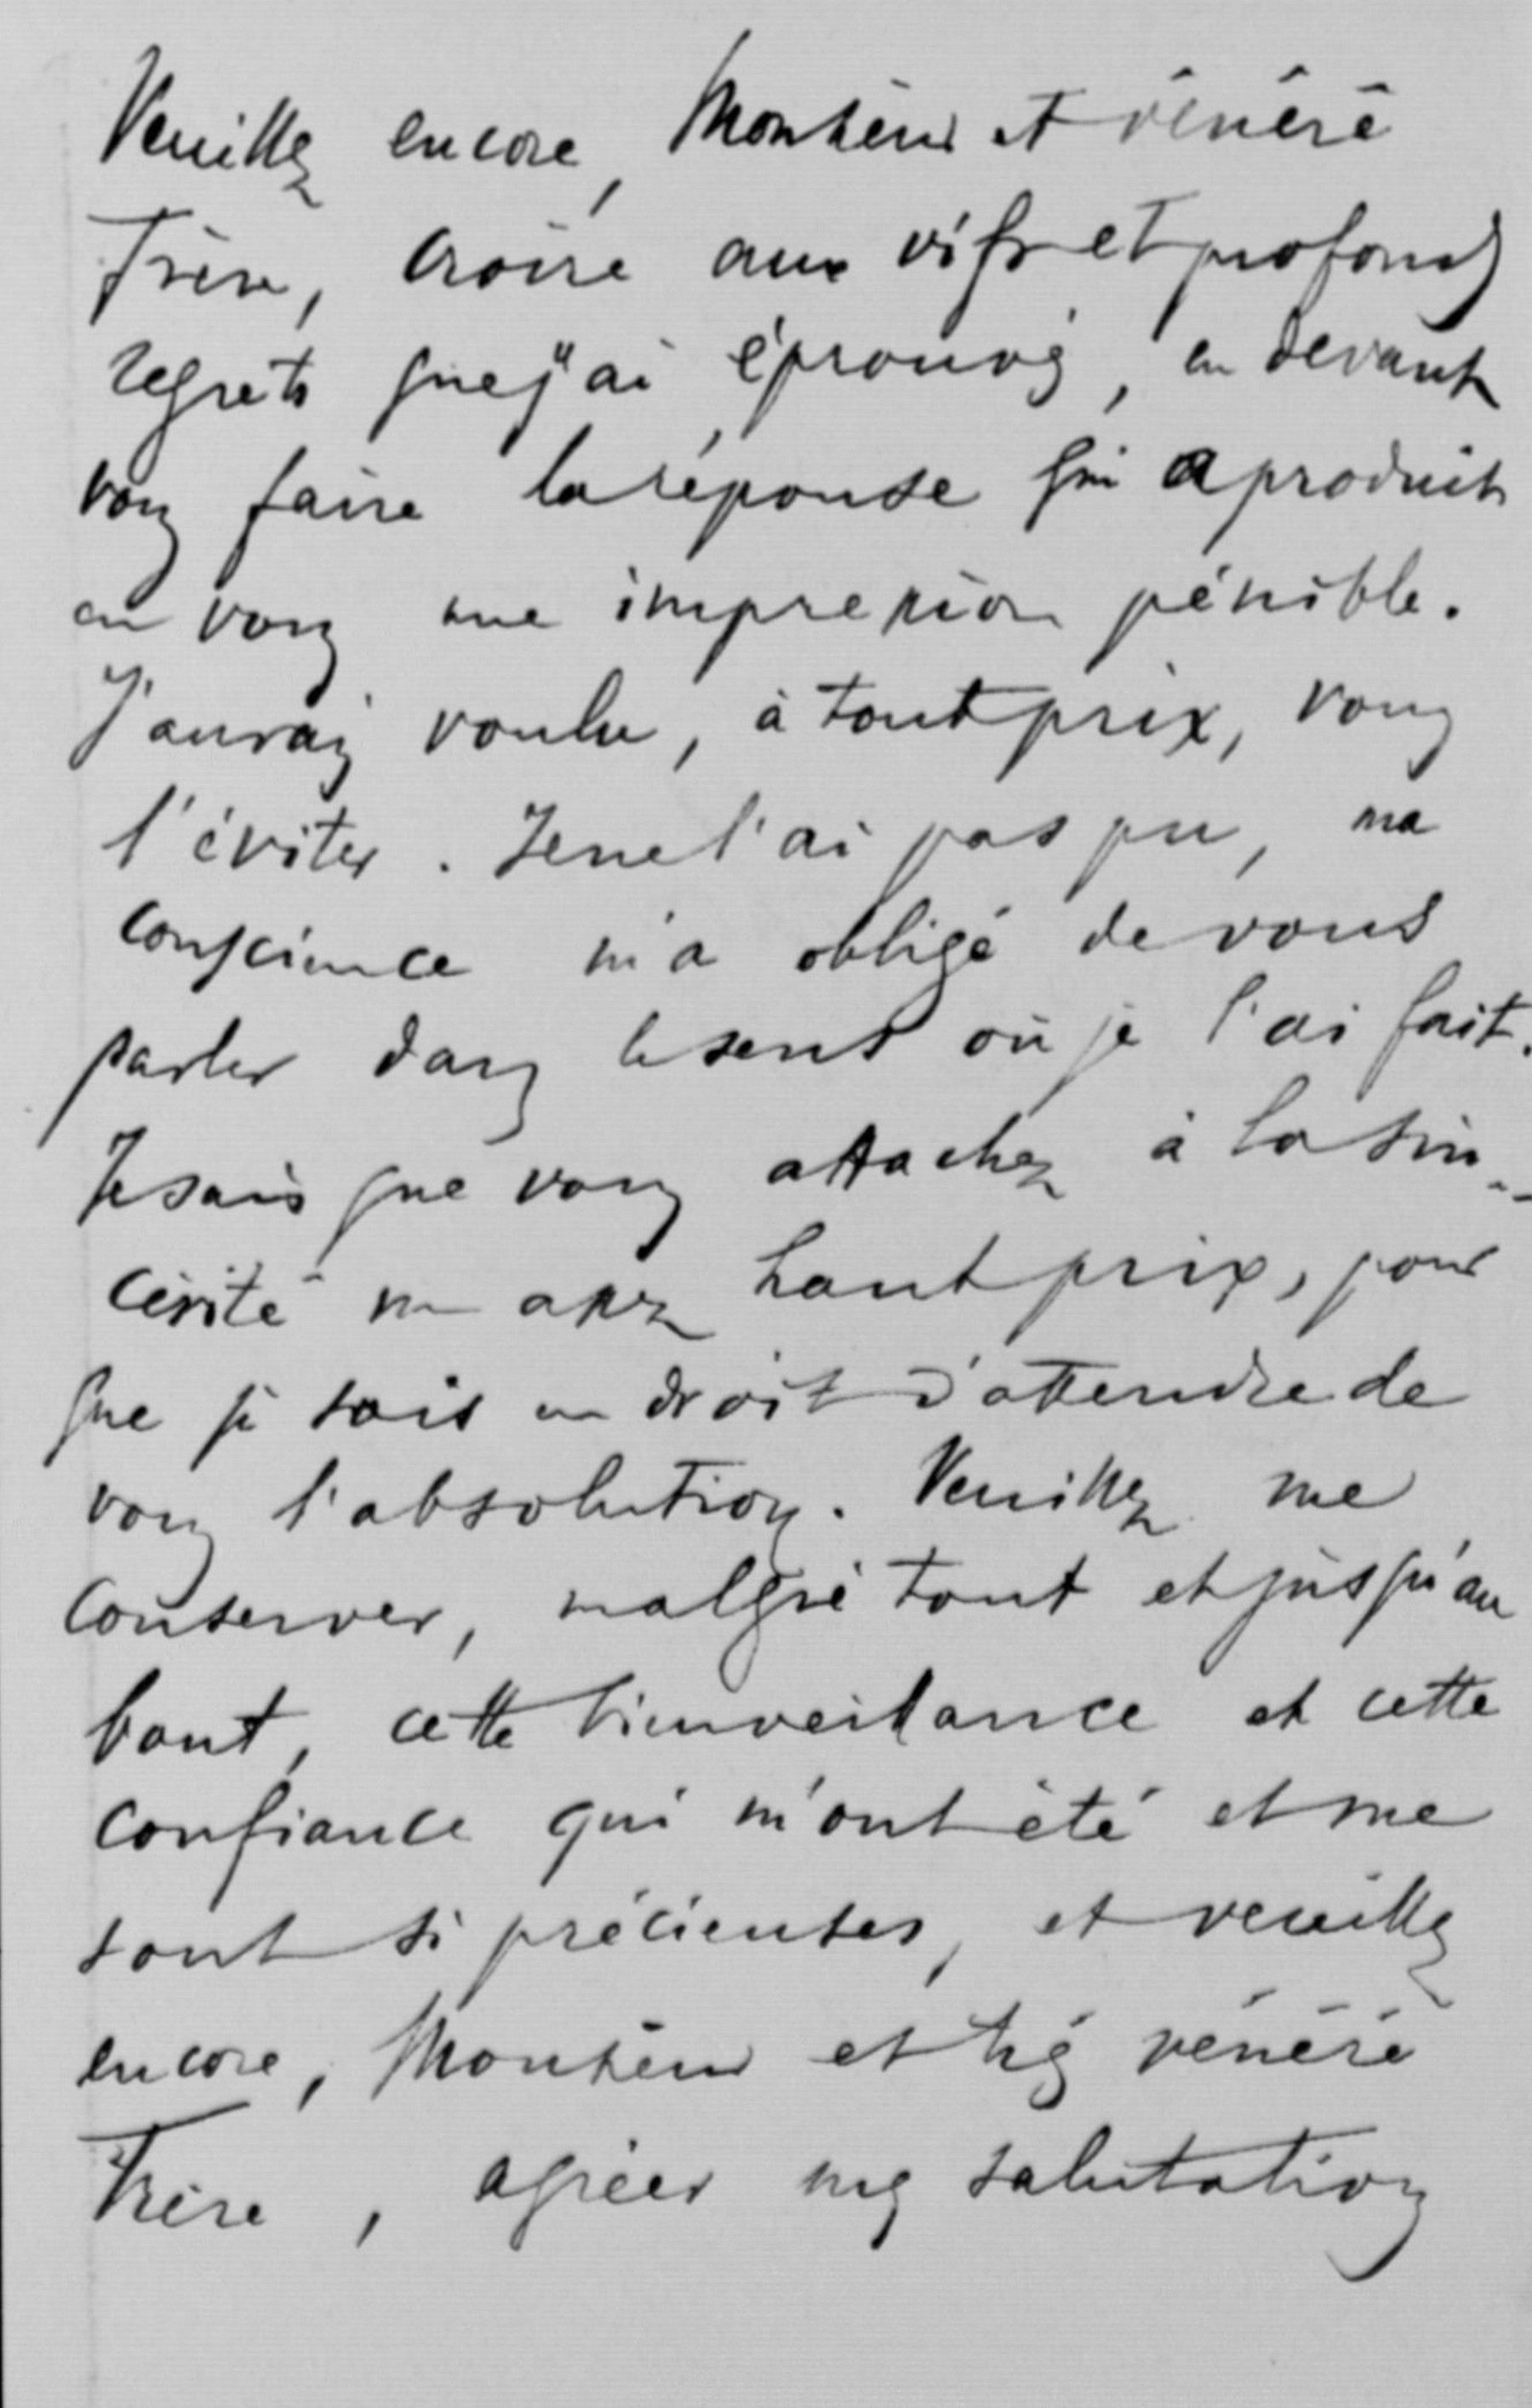 Veuillez encore, Monsieur et vénéré
Frère, croire aux vifs et profonds
regrets que j'ai éprouvés, en devant
vous faire la réponse qui a produit
en vous une impression pénible.
J'aurais voulu, à tout prix, vous
l'éviter. Je ne l'ai pas pu, ma
conscience m'a obligé de vous
parler dans le sens où je l'ai fait.
Je sais que vous attachez à la sin-
cérité un assez haut prix, pour
que je sois en droit d'attendre de
vous l'absolution. Veuillez me
conserver, malgré tout et jusqu'au
bout, cette bienveillance et cette
confiance qui m'ont été et me
sont si précieuses, et veuillez
encore, Monsieur et très vénéré
Frère, agréer mes salutations